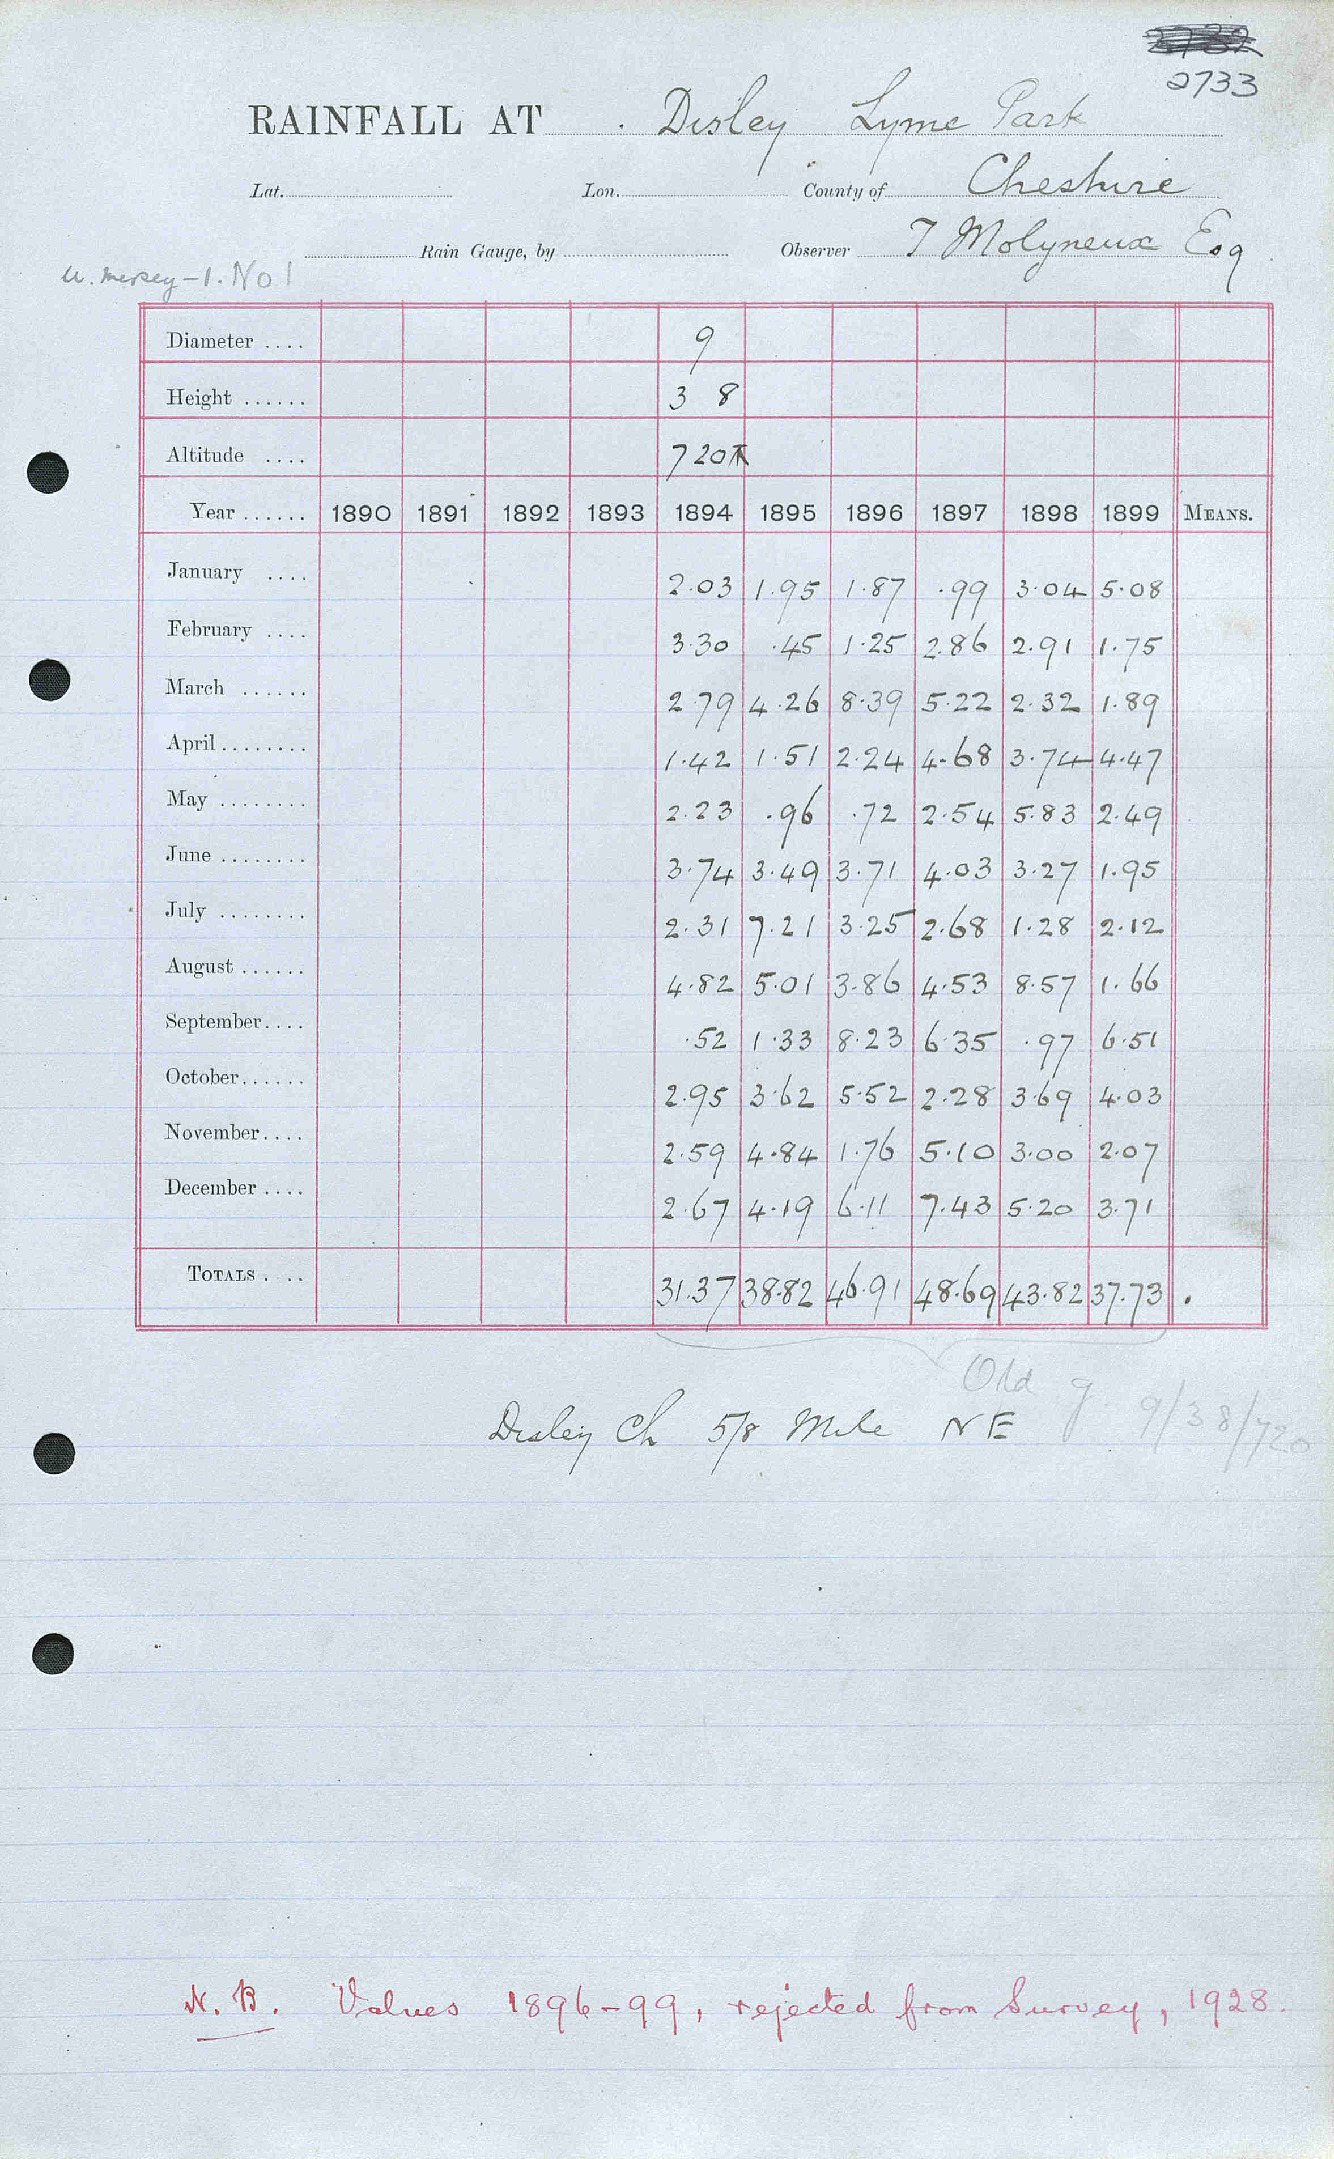 2733
RAINFALL AT Disley Lyme Park
Lat. Lon. County of Cheshire
Rain Gauge, by Observer T Molyneux Esq
U. Mersey - 1. No 1
Diameter .... 9
Height ...... 3 8
Altitude .... 720
Year ...... 1890 1891 1892 1893 1894 1895 1896 1897 1898 1899 MEANS.
January .... 2.03 1.95 1.87 .99 3.04 5.08
February .... 3.30 .45 1.25 2.86 2.91 1.75
March ...... 2.79 4.26 8.39 5.22 2.32 1.89
April ........ 1.42 1.51 2.24 4.68 3.74 4.47
May ........ 2.23 .96 .72 2.54 5.83 2.49
June ........ 3.74 3.49 3.71 4.03 3.27 1.95
July ........ 2.31 7.21 3.25 2.68 1.28 2.12
August ...... 4.82 5.01 3.86 4.53 8.57 1.66
September.... .52 1.33 8.23 6.35 .97 6.51
October...... 2.95 3.62 5.52 2.28 3.69 4.03
November.... 2.59 4.84 1.76 5.10 3.00 2.07
December .... 2.67 4.19 6.11 7.43 5.20 3.71
TOTALS . .. 31.37 38.82 46.91 48.69 43.82 37.73
Old g. 9/3 8/720
Disley Ch 5/8 Mile NE
N. B. Values 1896-99, rejected from Survey, 1928.